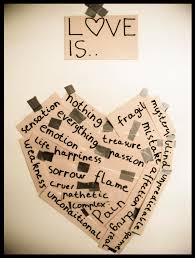 LOVE
IS..
nothing
sensation
everything
emotion
life
happiness
weakness
fragile
treasure
passion
mystery
mistake
affection
unpredictable
sorrow
flame
cruel
pathetic
complex
unconditional
pain
drugs